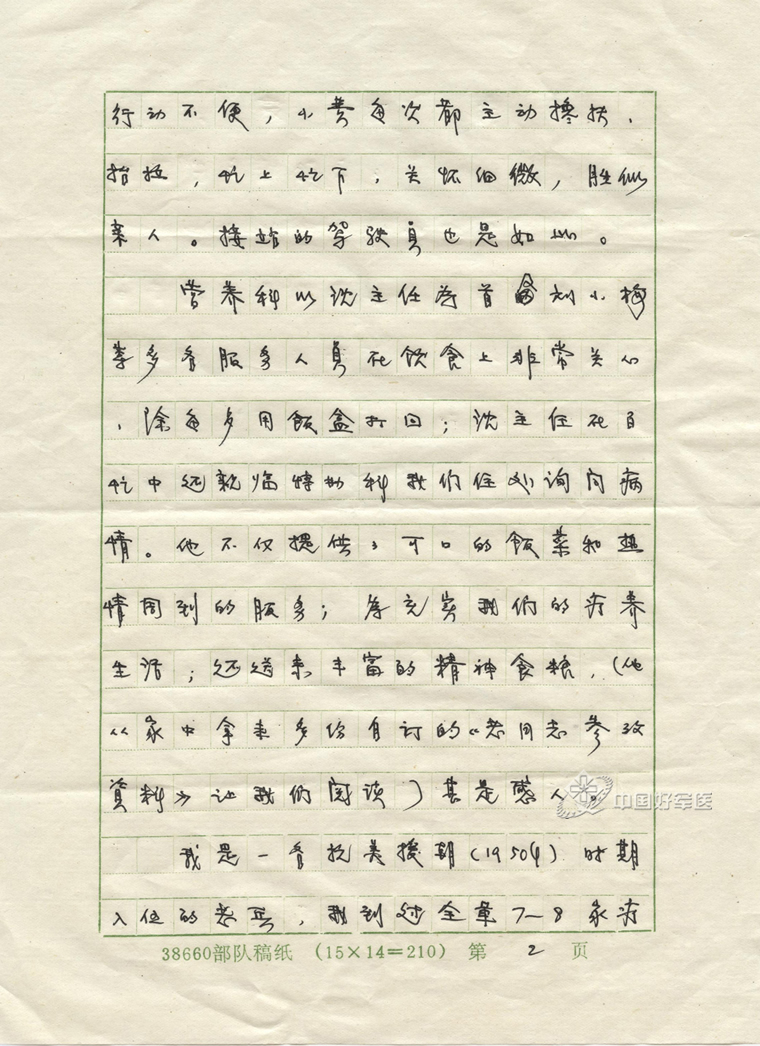 行动不便，小黄每次都主动搀扶、
抬拉，忙上忙下，关怀细微，胜似
亲人。接站的驾驶员也是如此。
营养科以沈主任为首刘小梅
等多名服务人员在饮食上非常关心
，除每多用饭盒打回；沈主任在百
忙中还亲临特勤科我们住处询问病
情。他不仅提供了可口的饭菜和热
情周到的服务；为充实我们的疗养
生活；还送来丰富的精神食粮，（他
从家中拿来多份自订的《老同志参改
资料》让我们阅读）甚是感人。
我是一名抗美援朝（1950年）时期
入伍的老兵，我到过全军7—8家疗
中国好军医
38660部队稿纸 （15×14＝210） 第 2 页